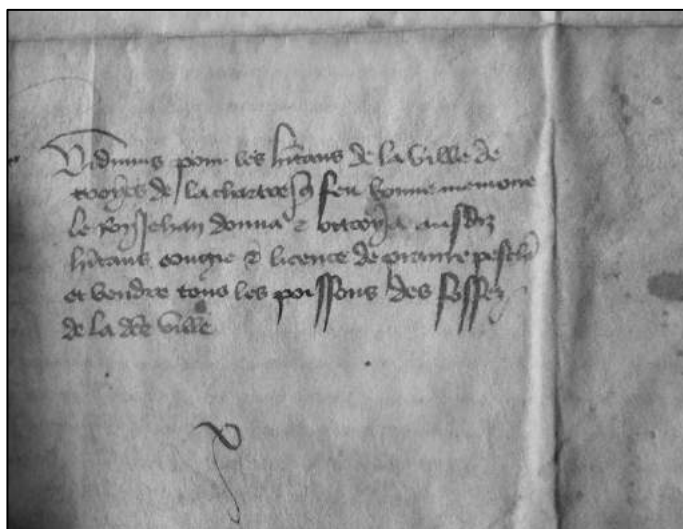 Vidimus pour les hitans de la ville de
troyes de la chartre q feu bonne memoire
le roy Jehan donna & ottroya ausdiz
hitans congie & licence de pranre peschr
et vendre tous les poissons des fossez
de la dte ville